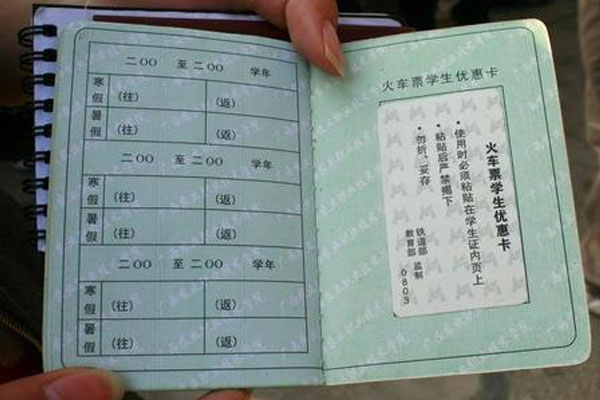 二OO 至二OO 学年
寒假 (往) (返)
暑假 (往) (返)
二OO 至二OO 学年
寒假 (往) (返)
暑假 (往) (返)
二OO 至二OO 学年
寒假 (往) (返)
暑假 (往) (返)
火车票学生优惠卡
火车票学生优惠卡
• 使用时必须粘贴在学生证内页上
• 粘贴后严禁揭下
• 勿折、妥存
铁道部
教育部 监制
0603